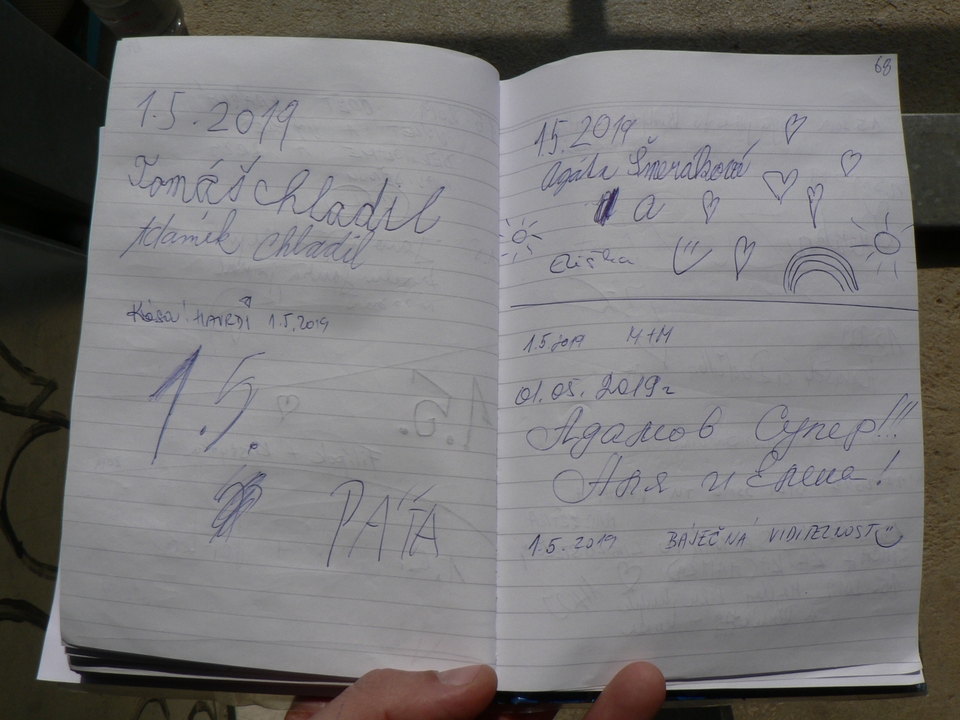 1.5.2019
Tomáš Chladil
Adámek Chladil
HAVRDÍ 1.5.2019
1.5.
PÁŤA
68
1.5.2019
Agáta Šmeráková
a
Eliška
1.5.2019 M+M
01.05.2019г
Адамов Супер!!!
Аня и Елена!
1.5.2019 BÁJEČNÁ VIDITELNOST